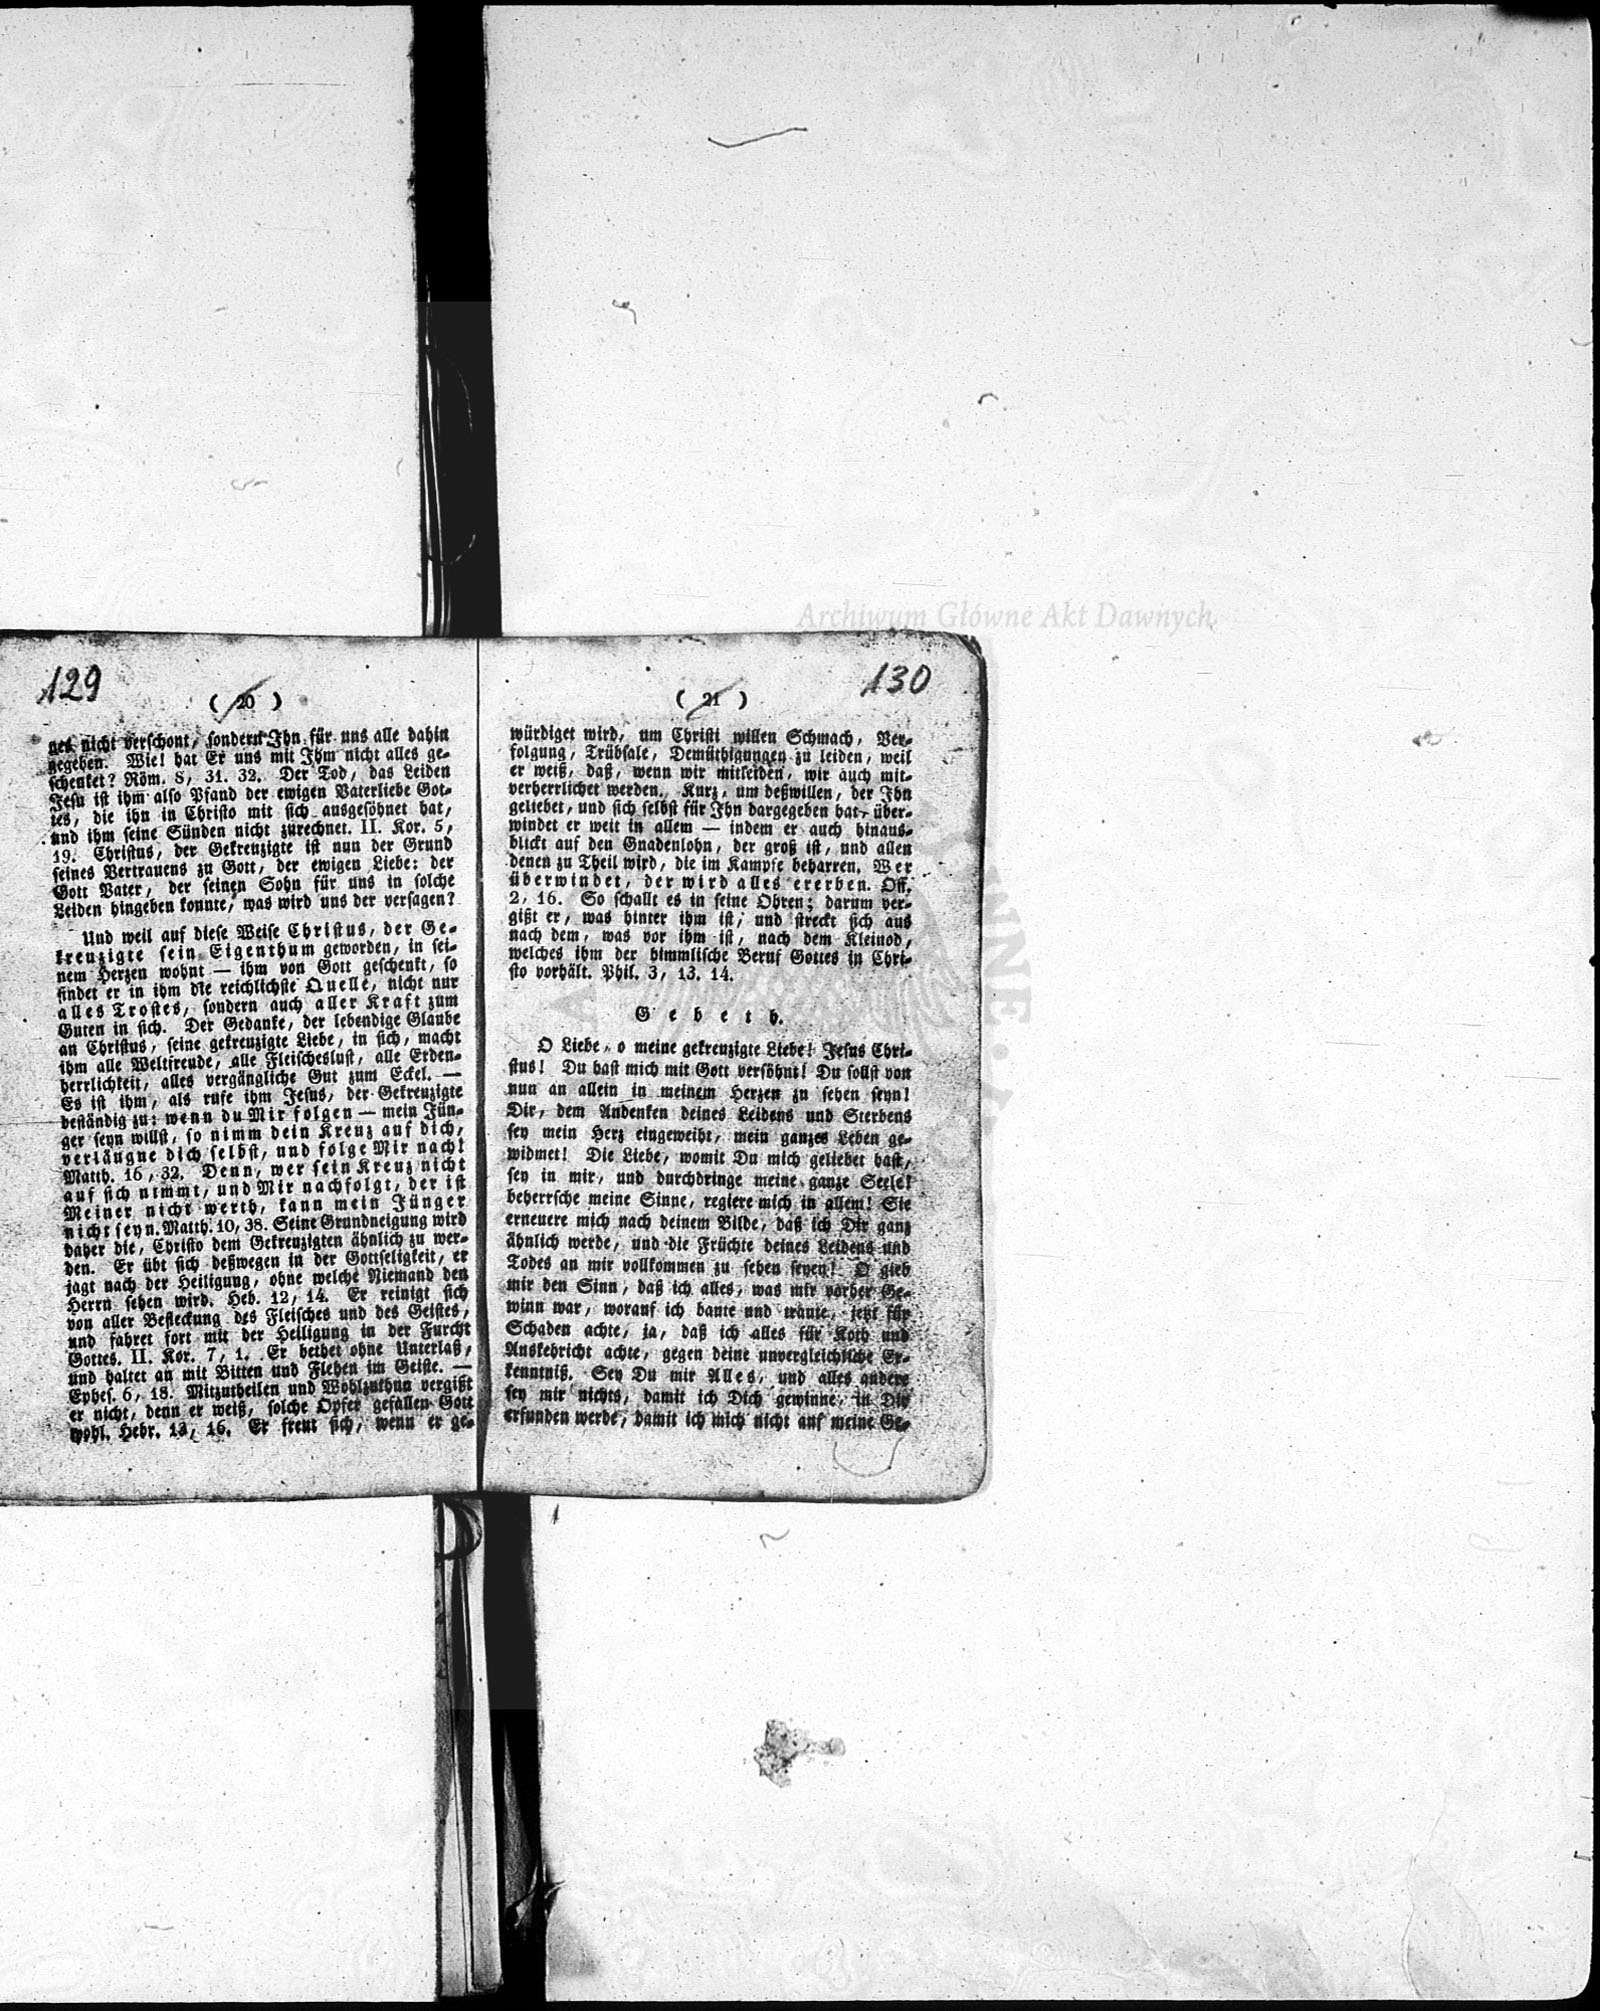 Archiwum Główne Akt Dawnych
129
( 20 )
nes nicht verschont, sondern Ihn für uns alle dahin
gegeben. Wie! hat Er uns mit Ihm nicht alles ge-
schenket? Röm. 8, 31. 32. Der Tod, das Leiden
Jesu ist ihm also Pfand der ewigen Vaterliebe Got-
tes, die ihn in Christo mit sich ausgesöhnet hat,
und ihm seine Sünden nicht zurechnet. II. Kor. 5,
19. Christus, der Gekreuzigte ist nun der Grund
seines Vertrauens zu Gott, der ewigen Liebe: der
Gott Vater, der seinen Sohn für uns in solche
Leiden hingeben konnte, was wird uns der versagen?
Und weil auf diese Weise Christus, der Ge-
kreuzigte sein Eigenthum geworden, in sei-
nem Herzen wohnt — ihm von Gott geschenkt, so
findet er in ihm die reichlichste Quelle, nicht nur
alles Trostes, sondern auch aller Kraft zum
Guten in sich. Der Gedanke, der lebendige Glaube
an Christus, seine gekreuzigte Liebe, in sich, macht
ihm alle Weltfreude, alle Fleischeslust, alle Erden-
herrlichkeit, alles vergängliche Gut zum Eckel. —
Es ist ihm, als rufe ihm Jesus, der Gekreuzigte
beständig zu: wenn du Mir folgen — mein Jün-
ger seyn willst, so nimm dein Kreuz auf dich,
verläugne dich selbst, und folge Mir nach!
Matth. 16, 32. Denn, wer sein Kreuz nicht
auf sich nimmt, und Mir nachfolgt, der ist
Meiner nicht werth, kann mein Jünger
nicht seyn. Matth. 10, 38. Seine Grundneigung wird
daher die, Christo dem Gekreuzigten ähnlich zu wer-
den. Er übt sich deßwegen in der Gottseligkeit, er
jagt nach der Heiligung, ohne welche Niemand den
Herrn sehen wird. Heb. 12, 14. Er reinigt sich
von aller Befleckung des Fleisches und des Geistes,
und fahret fort mit der Heiligung in der Furcht
Gottes. II. Kor. 7, 1. Er bethet ohne Unterlaß,
und haltet an mit Bitten und Flehen im Geiste. —
Ephes. 6, 18. Mitzutheilen und Wohlzuthun vergißt
er nicht, denn er weiß, solche Opfer gefallen Gott
wohl. Hebr. 13, 16. Er freut sich, wenn er ge-
130
( 21 )
würdiget wird, um Christi willen Schmach, Ver-
folgung, Trübsale, Demüthigungen zu leiden, weil
er weiß, daß, wenn wir mitleiden, wir auch mit-
verherrlichet werden. Kurz, um deßwillen, der Ihn
geliebet, und sich selbst für Ihn dargegeben hat, über-
windet er weit in allem — indem er auch hinaus-
blickt auf den Gnadenlohn, der groß ist, und allen
denen zu Theil wird, die im Kampfe beharren. Wer
überwindet, der wird alles ererben. Off.
2, 16. So schallt es in seine Ohren; darum ver-
gißt er, was hinter ihm ist, und streckt sich aus
nach dem, was vor ihm ist, nach dem Kleinod,
welches ihm der himmlische Beruf Gottes in Chri-
sto vorhält. Phil. 3, 13. 14.
Gebeth.
O Liebe, o meine gekreuzigte Liebe! Jesus Chri-
stus! Du hast mich mit Gott versöhnt! Du sollst von
nun an allein in meinem Herzen zu sehen seyn!
Dir, dem Andenken deines Leidens und Sterbens
sey mein Herz eingeweiht, mein ganzes Leben ge-
widmet! Die Liebe, womit Du mich geliebet hast,
sey in mir, und durchdringe meine ganze Seele!
beherrsche meine Sinne, regiere mich in allem! Sie
erneuere mich nach deinem Bilde, daß ich Dir ganz
ähnlich werde, und die Früchte deines Leidens und
Todes an mir vollkommen zu sehen seyen! O gieb
mir den Sinn, daß ich alles, was mir vorher Ge-
winn war, worauf ich baute und traute, jetzt für
Schaden achte, ja, daß ich alles für Koth und
Auskehricht achte, gegen deine unvergleichliche Er-
kenntniß. Sey Du mir Alles, und alles andere
sey mir nichts, damit ich Dich gewinne, in Dir
erfunden werde, damit ich mich nicht auf meine Ge-